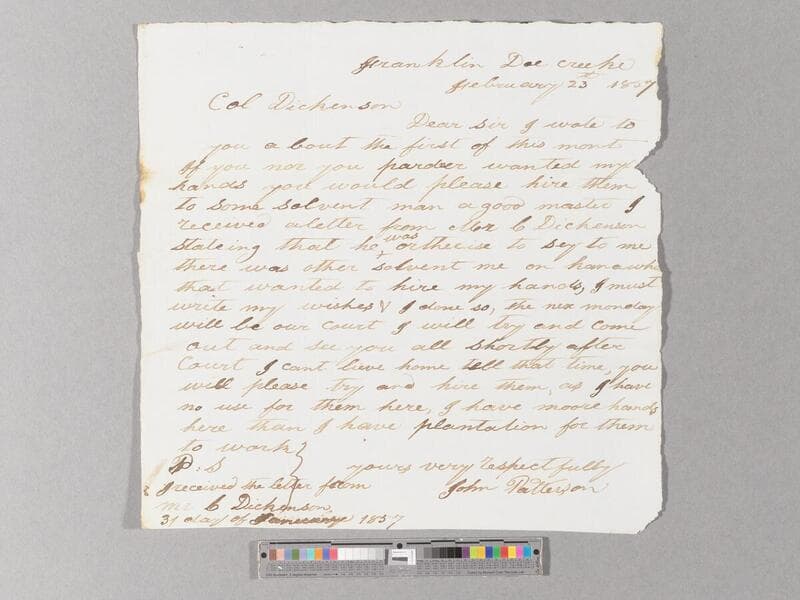 Franklin Doe creeke
February 23th 1857
Col Dickenson
Dear sir I wote to
you a bout the first of this mont
If you nor you pardser wanted my
hands you would please hire them
to some solvent man a good master I
received a letter from Mr C Dickenson
stateing that he was ortherise to sey to me
there was other solvent me on kanawha
that wanted to hire my hands, I must
write my wishes & I done so, the nex monday
will be our court I will try and come
out and see you all shortly after
Court I cant lieve home tell that time, you
will please try and hire them, as I have
no use for them here, I have moore hands
here than I have plantation for them
to work
P. S yours very respectfully
I received the letter from John Patterson
Mr C Dickenson
31 day of Januarye 1857